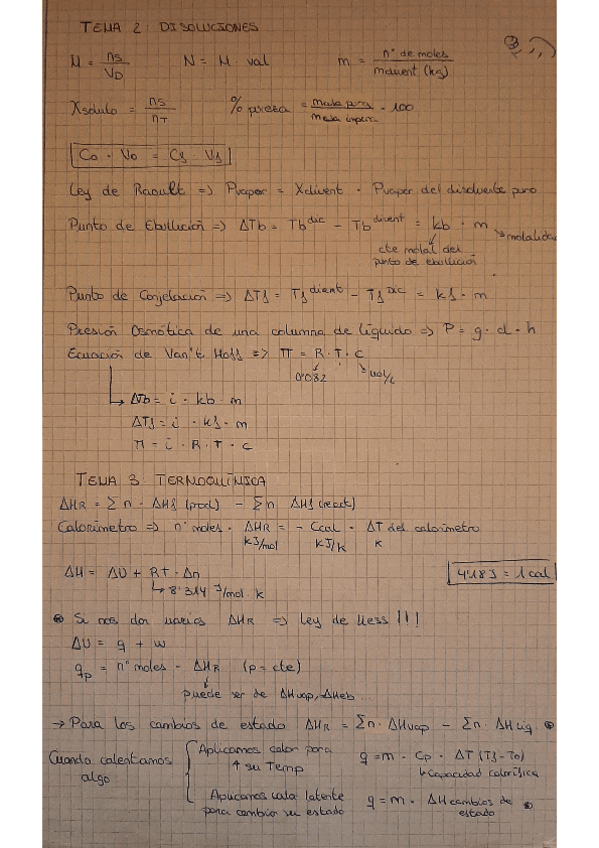 TEMA 2: DISOLUCIONES
M = ns / VD    N = M · val    m = nº de moles / mdisvent (kg)
Xsoluto = ns / nT    % pureza = masa pura / masa impura · 100
Co · Vo = Cf · Vf
Ley de Raoult => Pvapor = Xdisvent · Pvapor del disolvente puro
Punto de Ebullición => ΔTb = Tb disc - Tb disvent = kb · m
molalidad
cte molal del
punto de ebullición
Punto de Congelación => ΔTf = Tf disvent - Tf disc = kf · m
Presión Osmótica de una columna de líquido => P = g · d · h
Ecuación de Van't Hoff => π = R · T · c
0'082    mol/L
ΔTb = i · kb · m
ΔTf = i · kf · m
π = i · R · T · c
TEMA 3: TERMOQUÍMICA
ΔHR = Σ n · ΔHf (prod) - Σ n ΔHf (react)
Calorímetro => nº moles · ΔHR = - Ccal · ΔT del calorímetro
kJ/mol    kJ/K    K
ΔH = ΔU + RT · Δn    4'18 J = 1 cal
8'314 J/mol · K
Si nos dan varios ΔHR => Ley de Hess !!!
ΔU = q + w
qp = nº moles · ΔHR (p = cte)
puede ser de ΔHvap, ΔHeb ...
→ Para los cambios de estado ΔHR = Σn · ΔHvap - Σn · ΔHliq
Cuando calentamos
algo
Aplicamos calor para
↑ su Temp
q = m · Cp · ΔT (Tf - To)
Capacidad calorífica
Aplicamos calor latente
para cambiar su estado
q = m · ΔH cambios de
estado